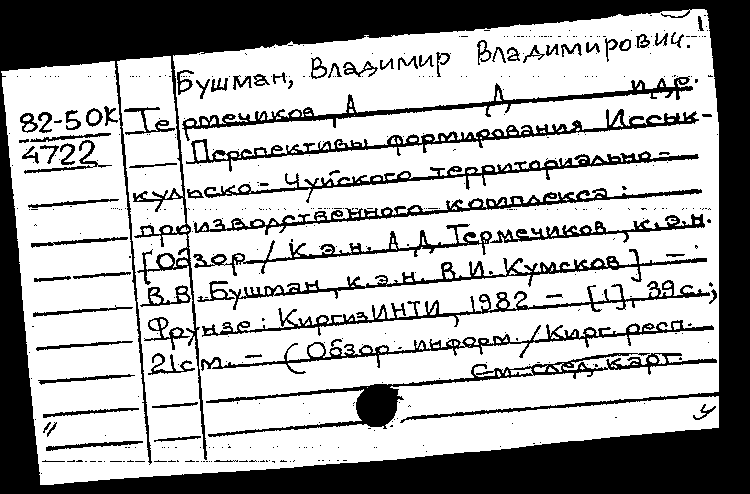 1
Бушман, Владимир Владимирович.
82-5 ОК Термечиков, А Д и др.
4722 Перспективы формирования Иссык-
кульско-Чуйского территориально-
производственного комплекса:
[Обзор / К.э.н. А.Д. Термечиков, к.э.н.
В.В. Бушман, к.э.н. В.И. Кумсков]. —
Фрунзе: КиргизИНТИ, 1982 — [1], 39 с.;
21 см. — (Обзор. информ. / Кирг. респ.
См. след. карт.
у